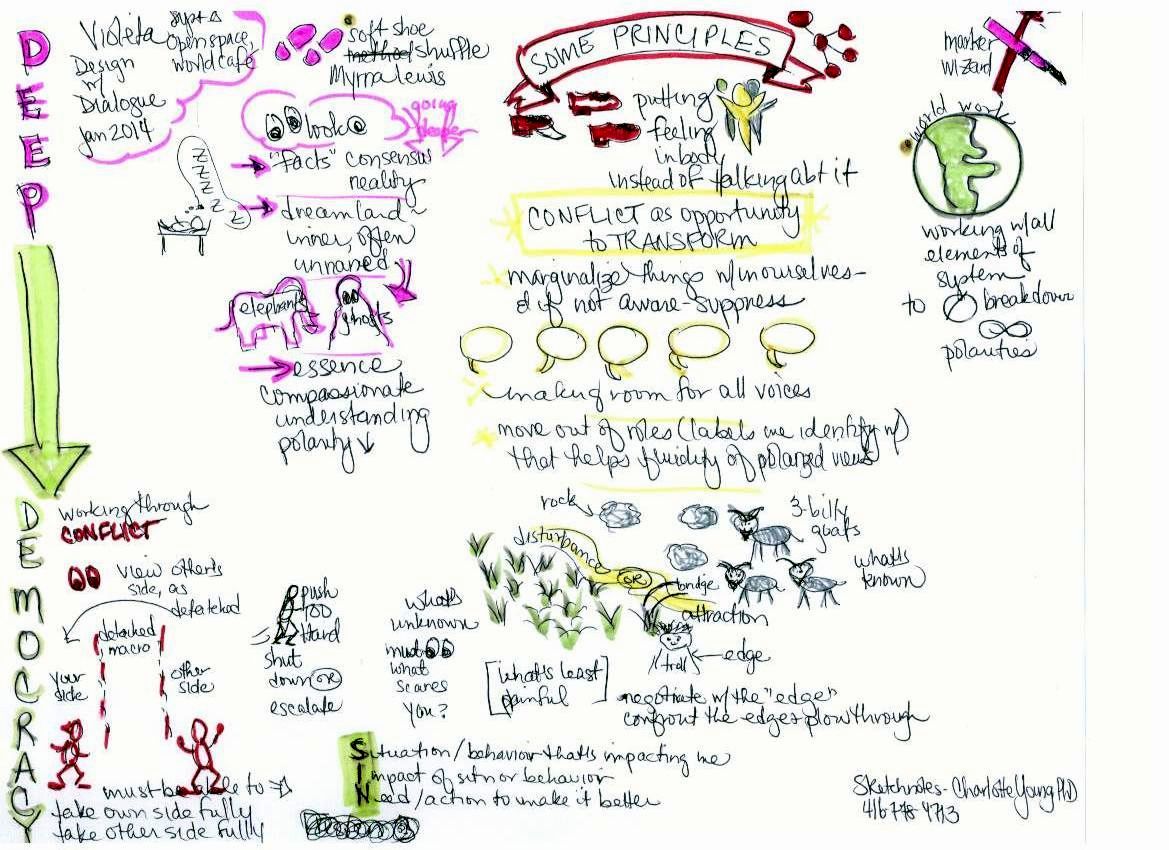 DEEP
DEMOCRACY
Violeta
Design
w/
Dialogue
Jan 2014
Open space,
world café
soft shoe
shuffle
Myrna Lewis
look @
going
deeper
Z
Z
Z
Z
Z
Z
"facts" consensus
reality
dreamland-
inner, often
unnamed
elephants
ghosts
essence
compassionate
understanding
polarity
SOME PRINCIPLES
putting
feeling
in body
instead of talking abt it
CONFLICT as opportunity
to TRANSFORM
marginalize things w/in ourselves-
& if not aware-suppress
making room for all voices
move out of roles (labels we identify w/)
that helps fluidity of polarized views
marker
wizard
world work
working w/all
elements of
system
to breakdown
polarities
working through
CONFLICT
view other's
side, as
detached
detached
macro
your
side
other
side
must be able to
take own side fully
take other side fully
push
too
Hard
shut
down OR
escalate
what's
unknown
must
what
scares
you?
rock
disturbance
OR
bridge
attraction
3-billy
goats
what's
known
troll
edge
[what's least
painful]
negotiate w/the "edge"
confront the edge & plow through
Situation/behavior that's impacting me
Impact of sitn or behavior
Need/action to make it better
Sketchnotes- Charlotte Young PhD
416 778-4713